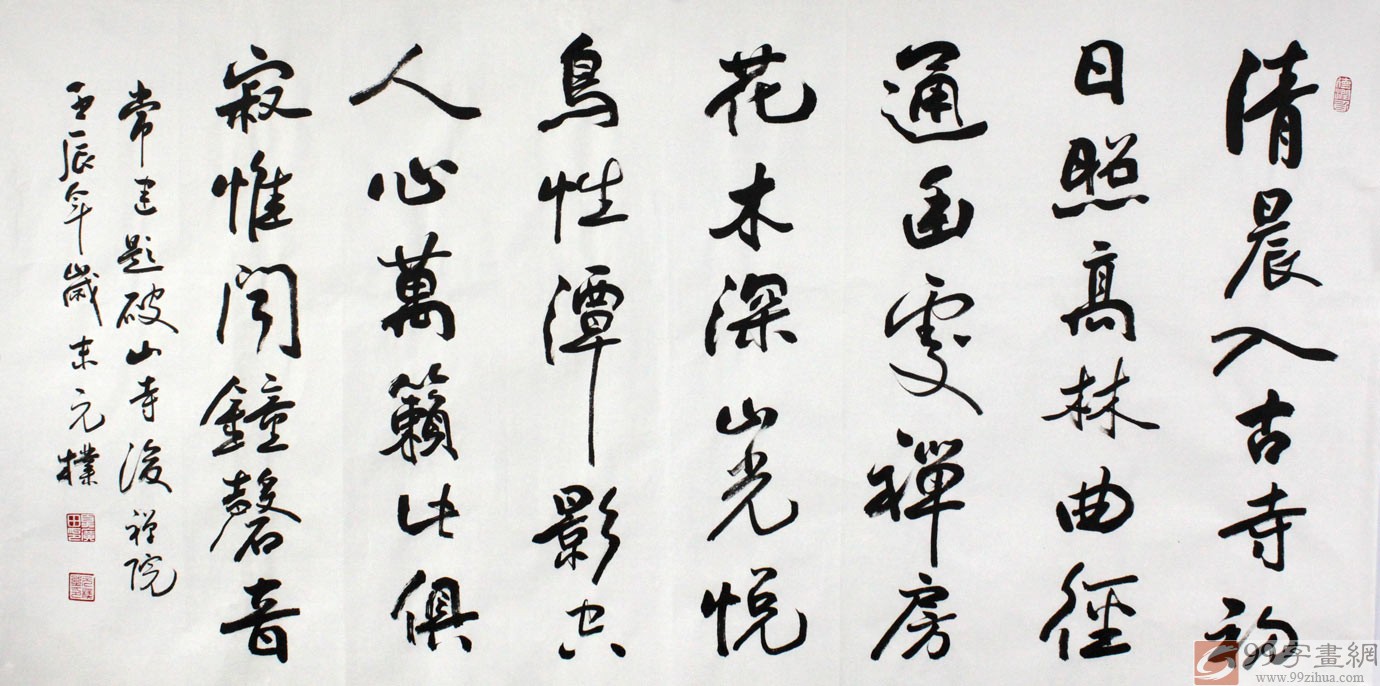 清晨入古寺初
日照高林曲徑
通幽處禪房
花木深山光悅
鳥性潭影空
人心萬籟此俱
寂惟聞鐘磬音
常建題破山寺後禪院
壬辰年歲末元樸
99字畫網
www.99zihua.com